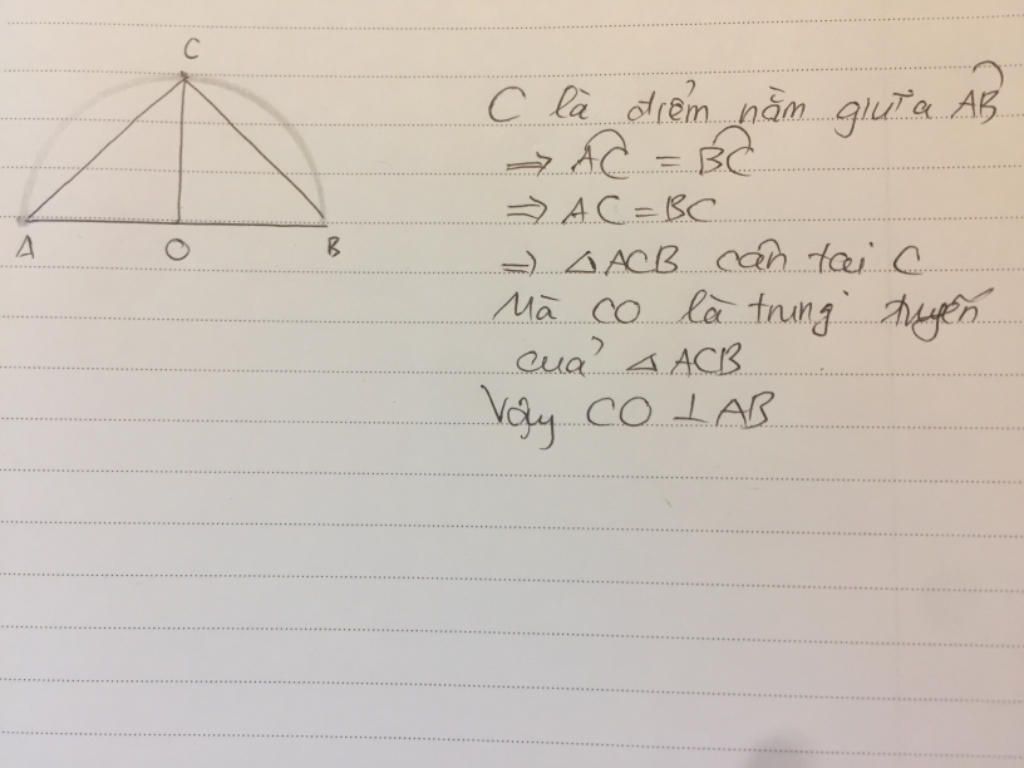 C
A
O
B
C là điểm nằm giữa A͡B
⇒ A͡C = B͡C
⇒ AC = BC
⇒ △ACB cân tại C
Mà CO là trung tuyến
của △ACB
Vậy CO ⊥ AB